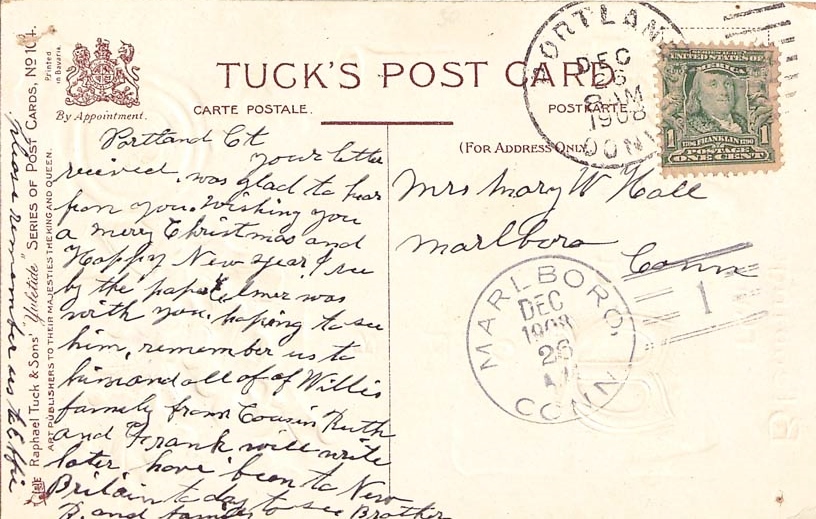 TUCK'S POST CARD
CARTE POSTALE.
POSTKARTE
(FOR ADDRESS ONLY
Printed
in Bavaria.
By Appointment.
Raphael Tuck & Sons' "Yuletide" SERIES OF POST CARDS, No 104.
ART PUBLISHERS TO THEIR MAJESTIES THE KING AND QUEEN.
please remember us to Effie
Portland Ct
your letter
received, was glad to hear
from you. Wishing you
a merry Christmas and
Happy New year, I see
by the paper Elmer was
with you, hoping to see
him, remember us to
him and all of of Willis
family from Cousin Ruth
and Frank will write
later, have been to New
Britain to day to see Brother
R. and family
PORTLAND
DEC
26
8 AM
1908
CONN
UNITED STATES OF
AMERICA
1706 FRANKLIN 1790
1 1
POSTAGE
ONE CENT
Mrs Mary W Hall
Marlboro
Conn
MARLBORO,
DEC
1908
26
AM
CONN
1